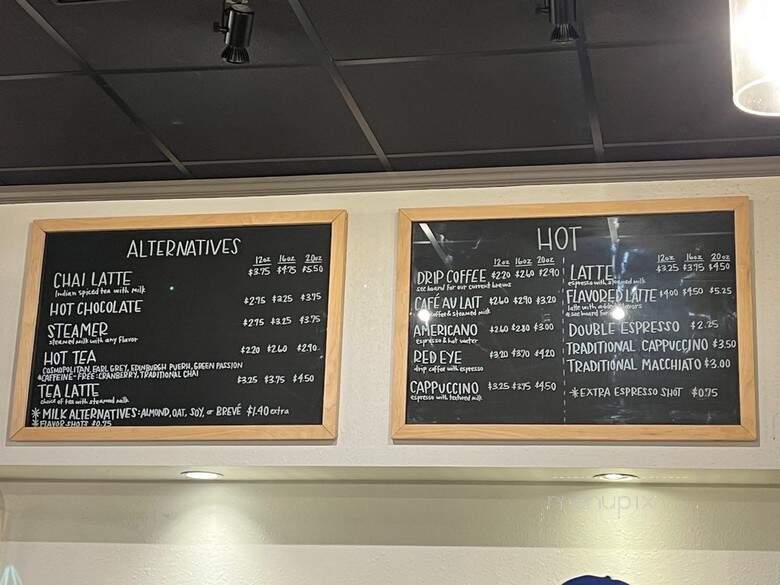 ALTERNATIVES
12oz 16oz 20oz
CHAI LATTE $3.75 $4.75 $5.50
Indian spiced tea with milk
HOT CHOCOLATE $2.75 $3.25 $3.75
STEAMER $2.75 $3.25 $3.75
steamed milk with any flavor
HOT TEA $2.20 $2.60 $2.90
COSMOPOLITAN, EARL GREY, EDINBURGH PUERH, GREEN PASSION
*CAFFEINE-FREE: CRANBERRY, TRADITIONAL CHAI
TEA LATTE $3.25 $3.75 $4.50
choice of tea with steamed milk
* MILK ALTERNATIVES: ALMOND, OAT, SOY, or BREVÉ $1.40 extra
* FLAVOR SHOTS $0.75
HOT
12oz 16oz 20oz
DRIP COFFEE $2.20 $2.60 $2.90
see board for our current brews
CAFÉ AU LAIT $2.60 $2.90 $3.20
coffee & steamed milk
AMERICANO $2.60 $2.80 $3.00
espresso & hot water
RED EYE $3.20 $3.70 $4.20
drip coffee with espresso
CAPPUCCINO $3.25 $3.75 $4.50
espresso with textured milk
12oz 16oz 20oz
LATTE $3.25 $3.75 $4.50
espresso with steamed milk
FLAVORED LATTE $4.00 $4.50 $5.25
latte with flavors
* see board for
DOUBLE ESPRESSO $2.25
TRADITIONAL CAPPUCCINO $3.50
TRADITIONAL MACCHIATO $3.00
* EXTRA ESPRESSO SHOT $0.75
menupix